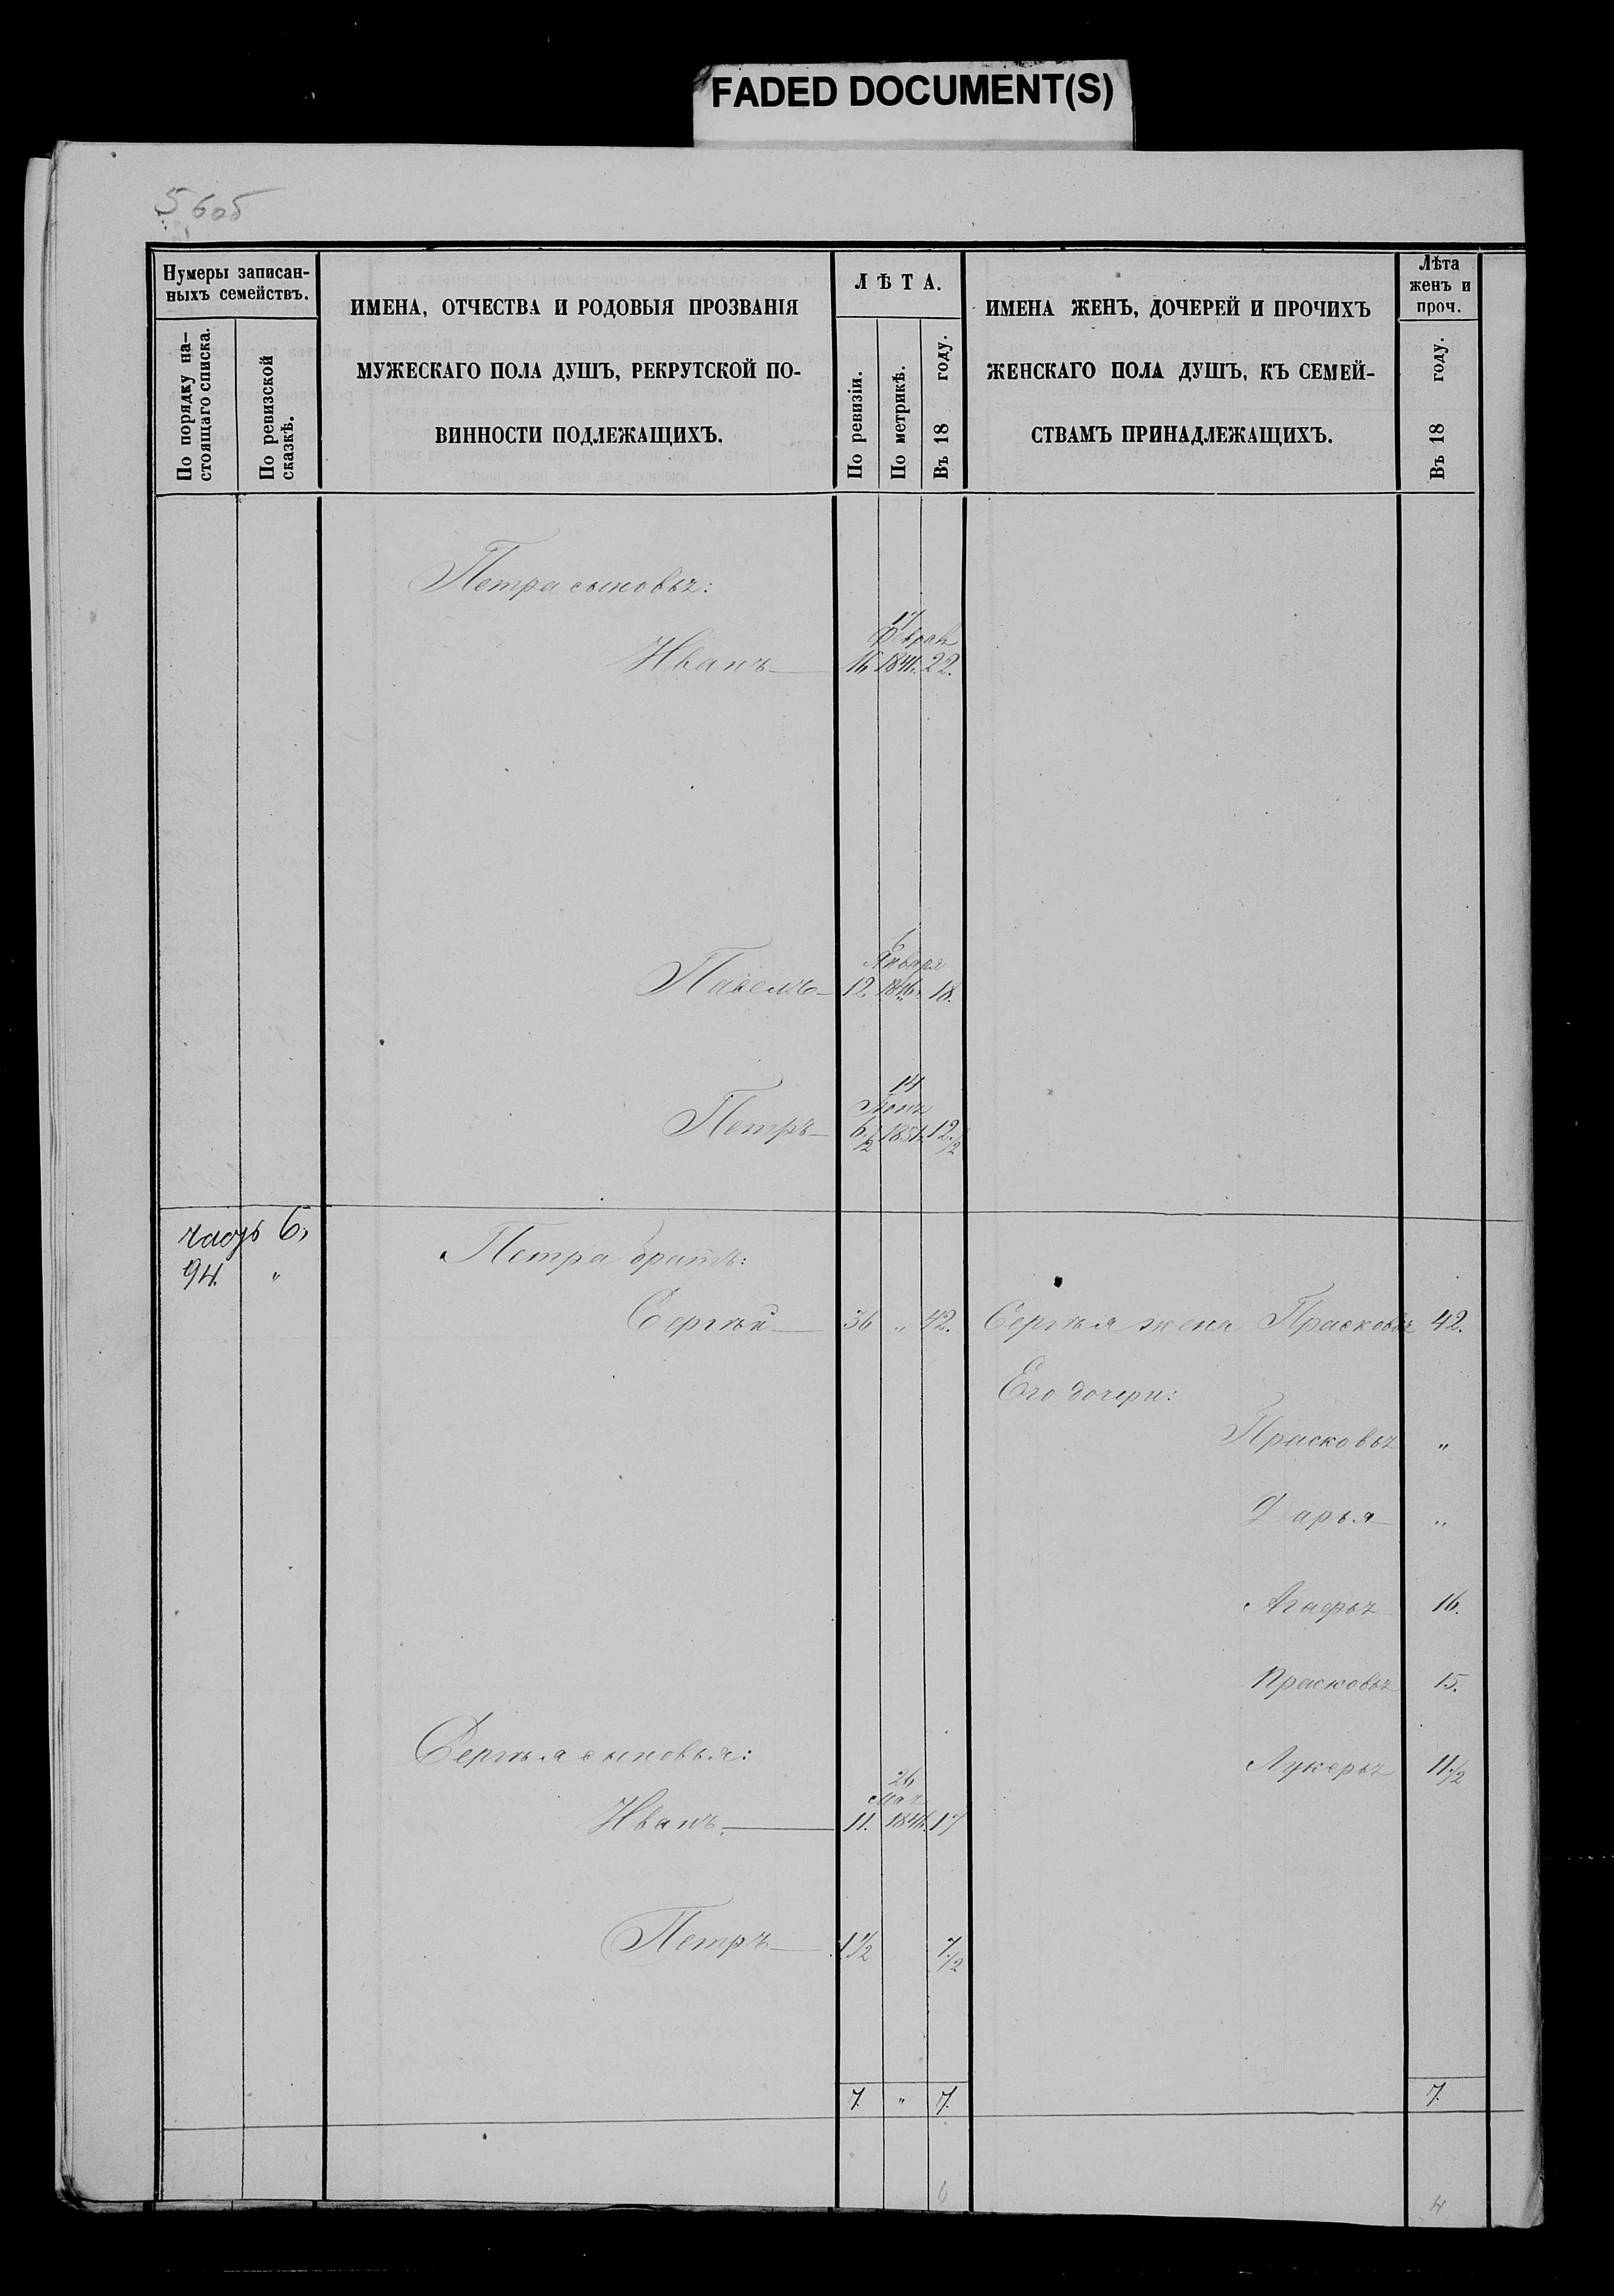 FADED DOCUMENT(S)
5 605
Нумеры записан-
ныхъ семействъ.
По порядку на-
стоящаго списка.
По ревизской
сказкѣ.
ИМЕНА, ОТЧЕСТВА И РОДОВЫЯ ПРОЗВАНІЯ
МУЖЕСКАГО ПОЛА ДУШЪ, РЕКРУТСКОЙ ПО-
ВИННОСТИ ПОДЛЕЖАЩИХЪ.
ЛѢТА.
По ревизіи.
По метрикѣ.
Въ 18 году.
ИМЕНА ЖЕНЪ, ДОЧЕРЕЙ И ПРОЧИХЪ
ЖЕНСКАГО ПОЛА ДУШЪ, КЪ СЕМЕЙ-
СТВАМЪ ПРИНАДЛЕЖАЩИХЪ.
Лѣта
женъ и
проч.
Въ 18 году.
Петра сыновья:
17
Феврал
Иванъ 16 1841. 22.
6
Января
Павелъ 12 1846. 18.
14
Іюня
Петръ 6 1/2 1851. 12 1/2
часть 6,
94. "
Петра братъ:
Сергѣй 36 " 42. Сергѣя жена Прасковья 42.
Его дочери:
Прасковья "
Дарья "
Агафья 16.
Прасковья 15.
Сергѣя сыновья:
Лукерья 11 1/2
26
Мая
Иванъ 11. 1846. 17
Петръ 1 1/2 7 1/2
7. " 7. 7.
6 4